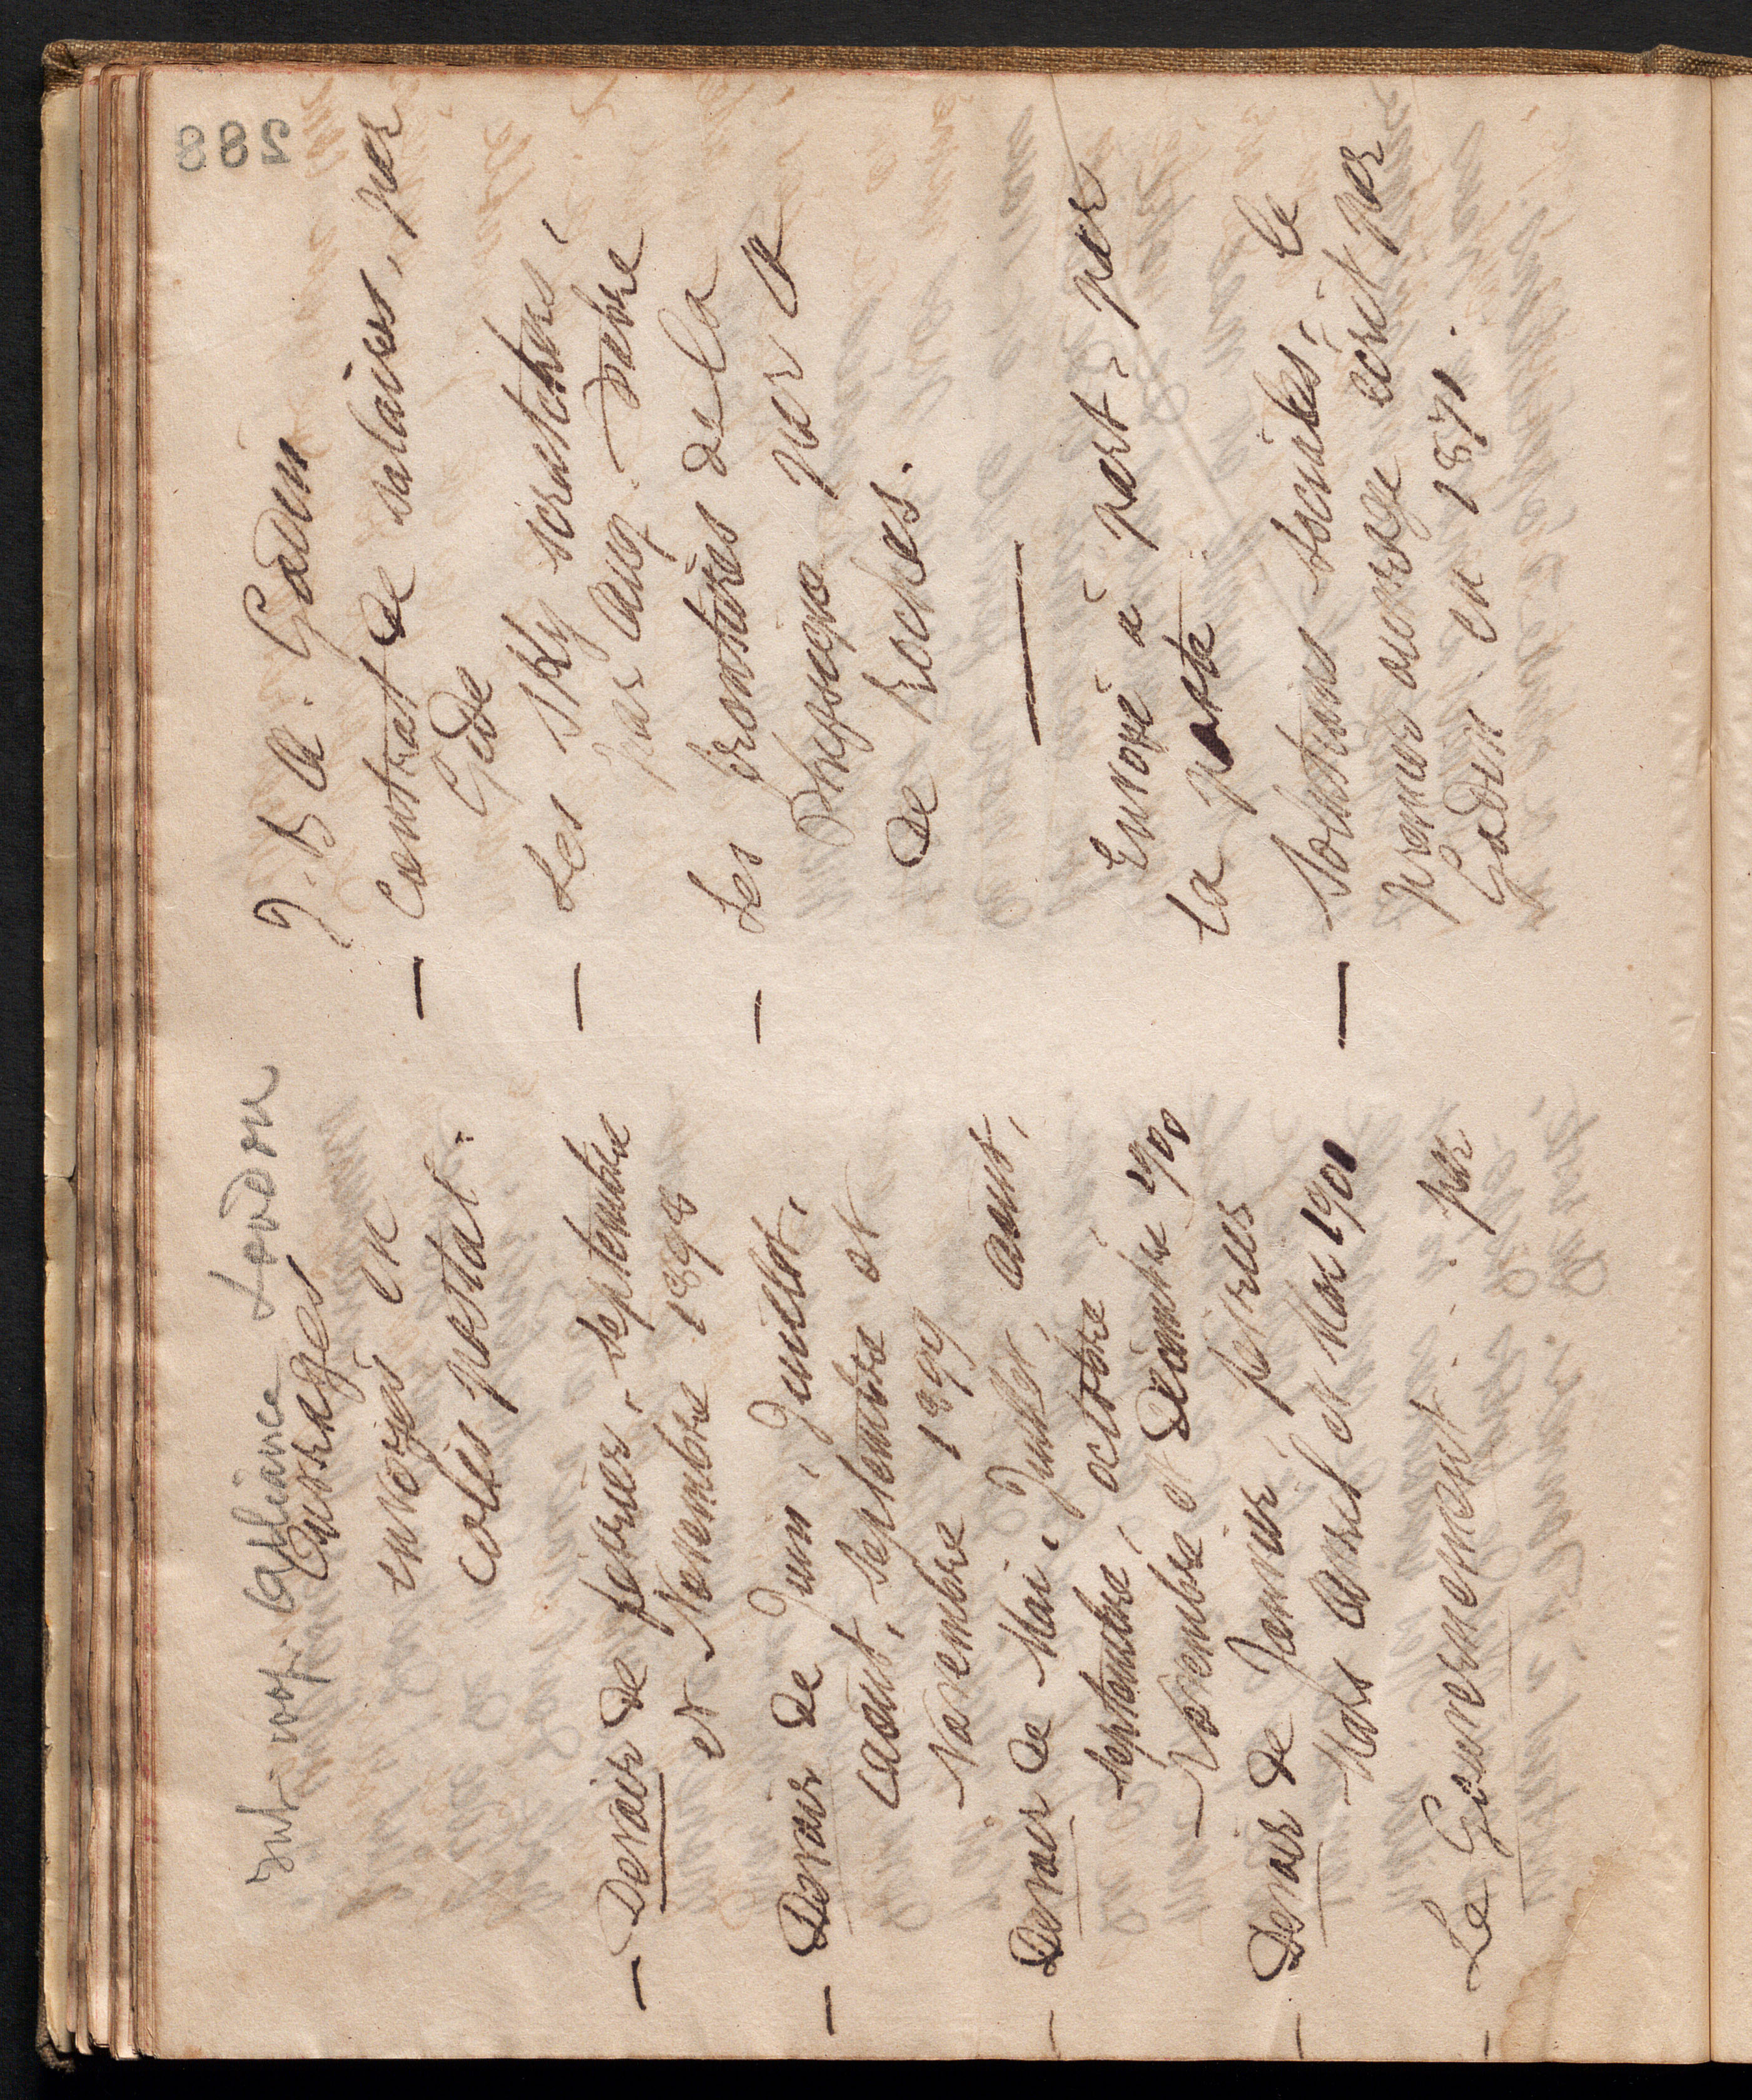 288
Ouvrages
envoyés en
colis postal.
— Devoir de février, septembre
et Novembre 1898
— Devoir de Juin, Juillet,
aout, septembre et
Novembre 1899
— Devoir de Mai, Juillet, aout,
septembre, octobre,
Novembre et Décembre 1900
— Devoir de Janvier février
Mars Avril et Mai 1901
— Le Gouvernement . . par
J. B A. Godin
— Contrat de salaires, par
Gide
— Les sky scratchers,
par Aug. Fabre
— Les frontières de la
Physique par A
de Rochas.
Envoyé à part, par
la poste
— Solutions sociales, le
premier ouvrage écrit par
Godin en 1871.